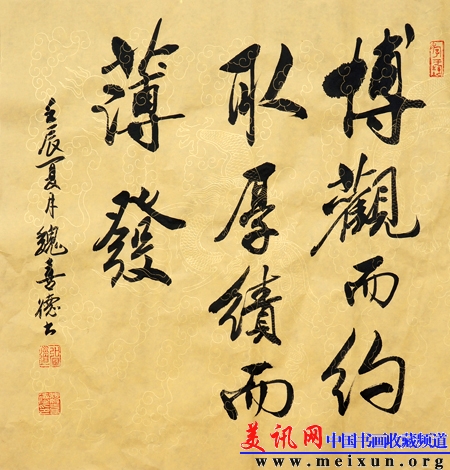 博觀而約
取厚績而
薄發
壬辰夏月魏喜德书
美讯网 中国书画收藏频道
www.meixun.org